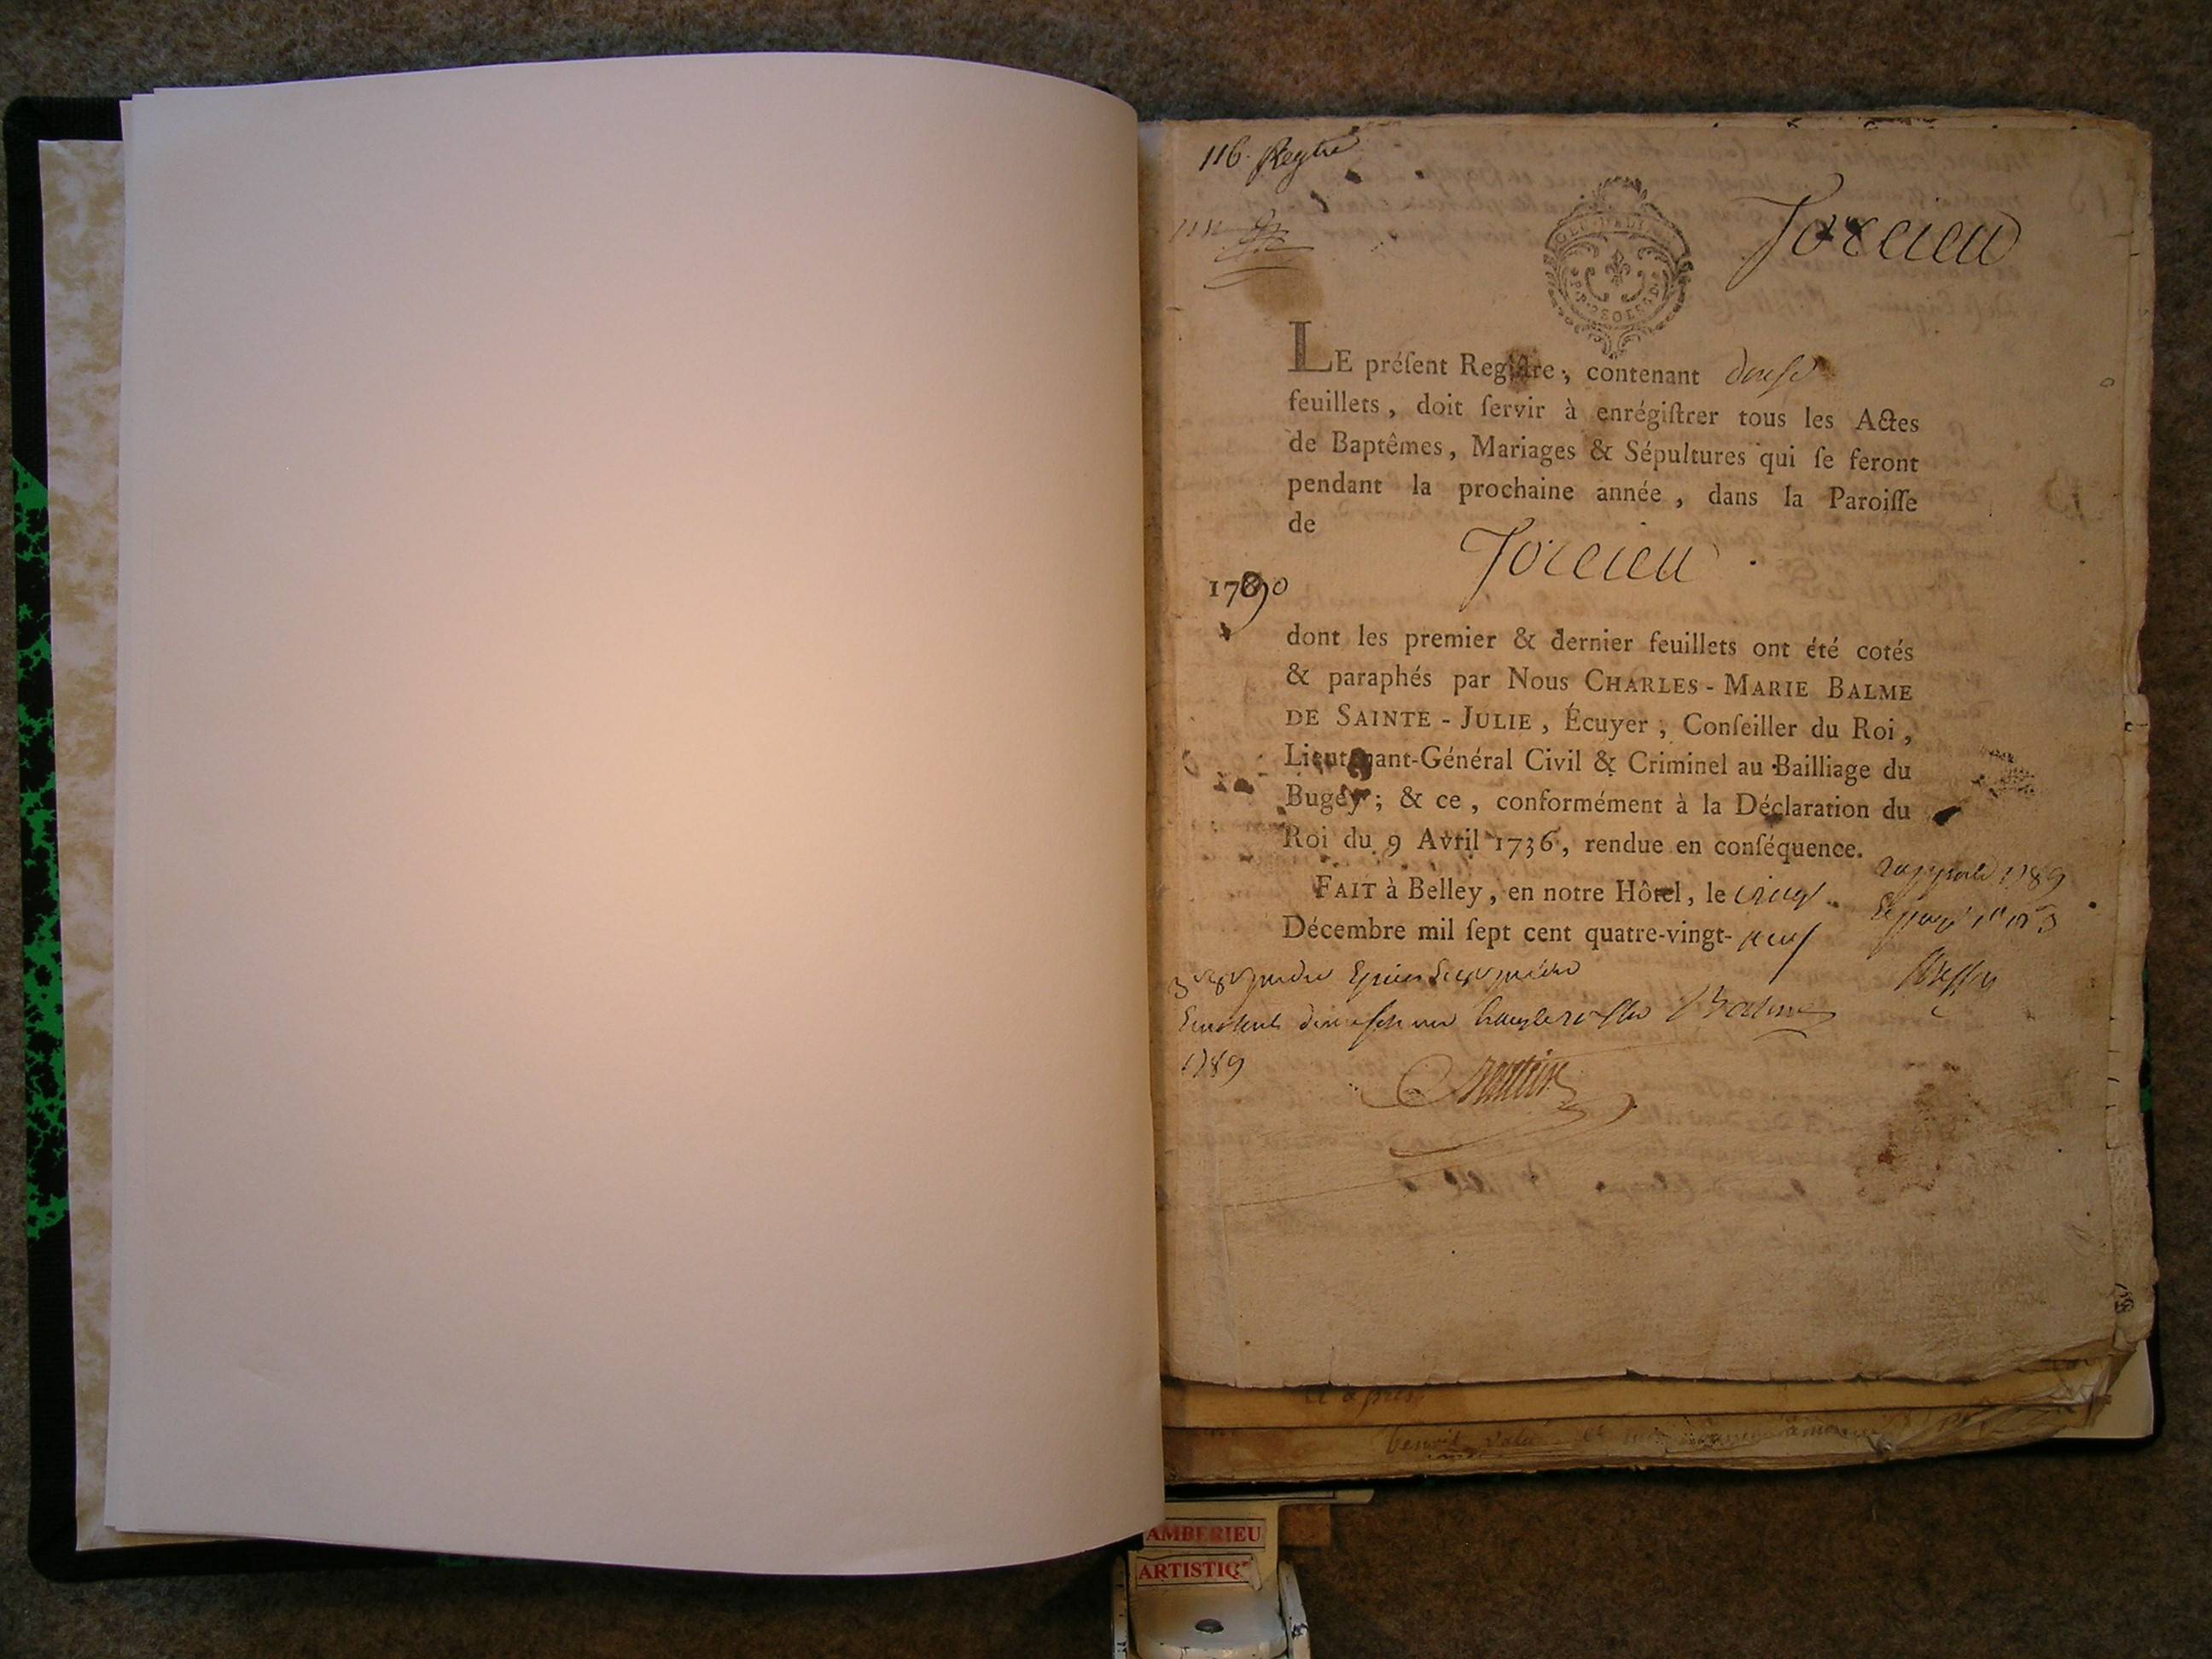 116. Regtre
Torcieu
LE préſent Regiſtre, contenant douſe
feuillets, doit ſervir à enrégiſtrer tous les Actes
de Baptêmes, Mariages & Sépultures qui ſe feront
pendant la prochaine année, dans la Paroiſſe
de
Torcieu
1790
dont les premier & dernier feuillets ont été cotés
& paraphés par Nous CHARLES-MARIE BALME
DE SAINTE-JULIE, Écuyer, Conſeiller du Roi,
Lieutenant-Général Civil & Criminel au Bailliage du
Bugey; & ce, conformément à la Déclaration du
Roi du 9 Avril 1736, rendue en conſéquence.
FAIT à Belley, en notre Hôtel, le vingt
Décembre mil ſept cent quatre-vingt-neuf
1789
Balme
1789
AMBERIEU
ARTISTIQ